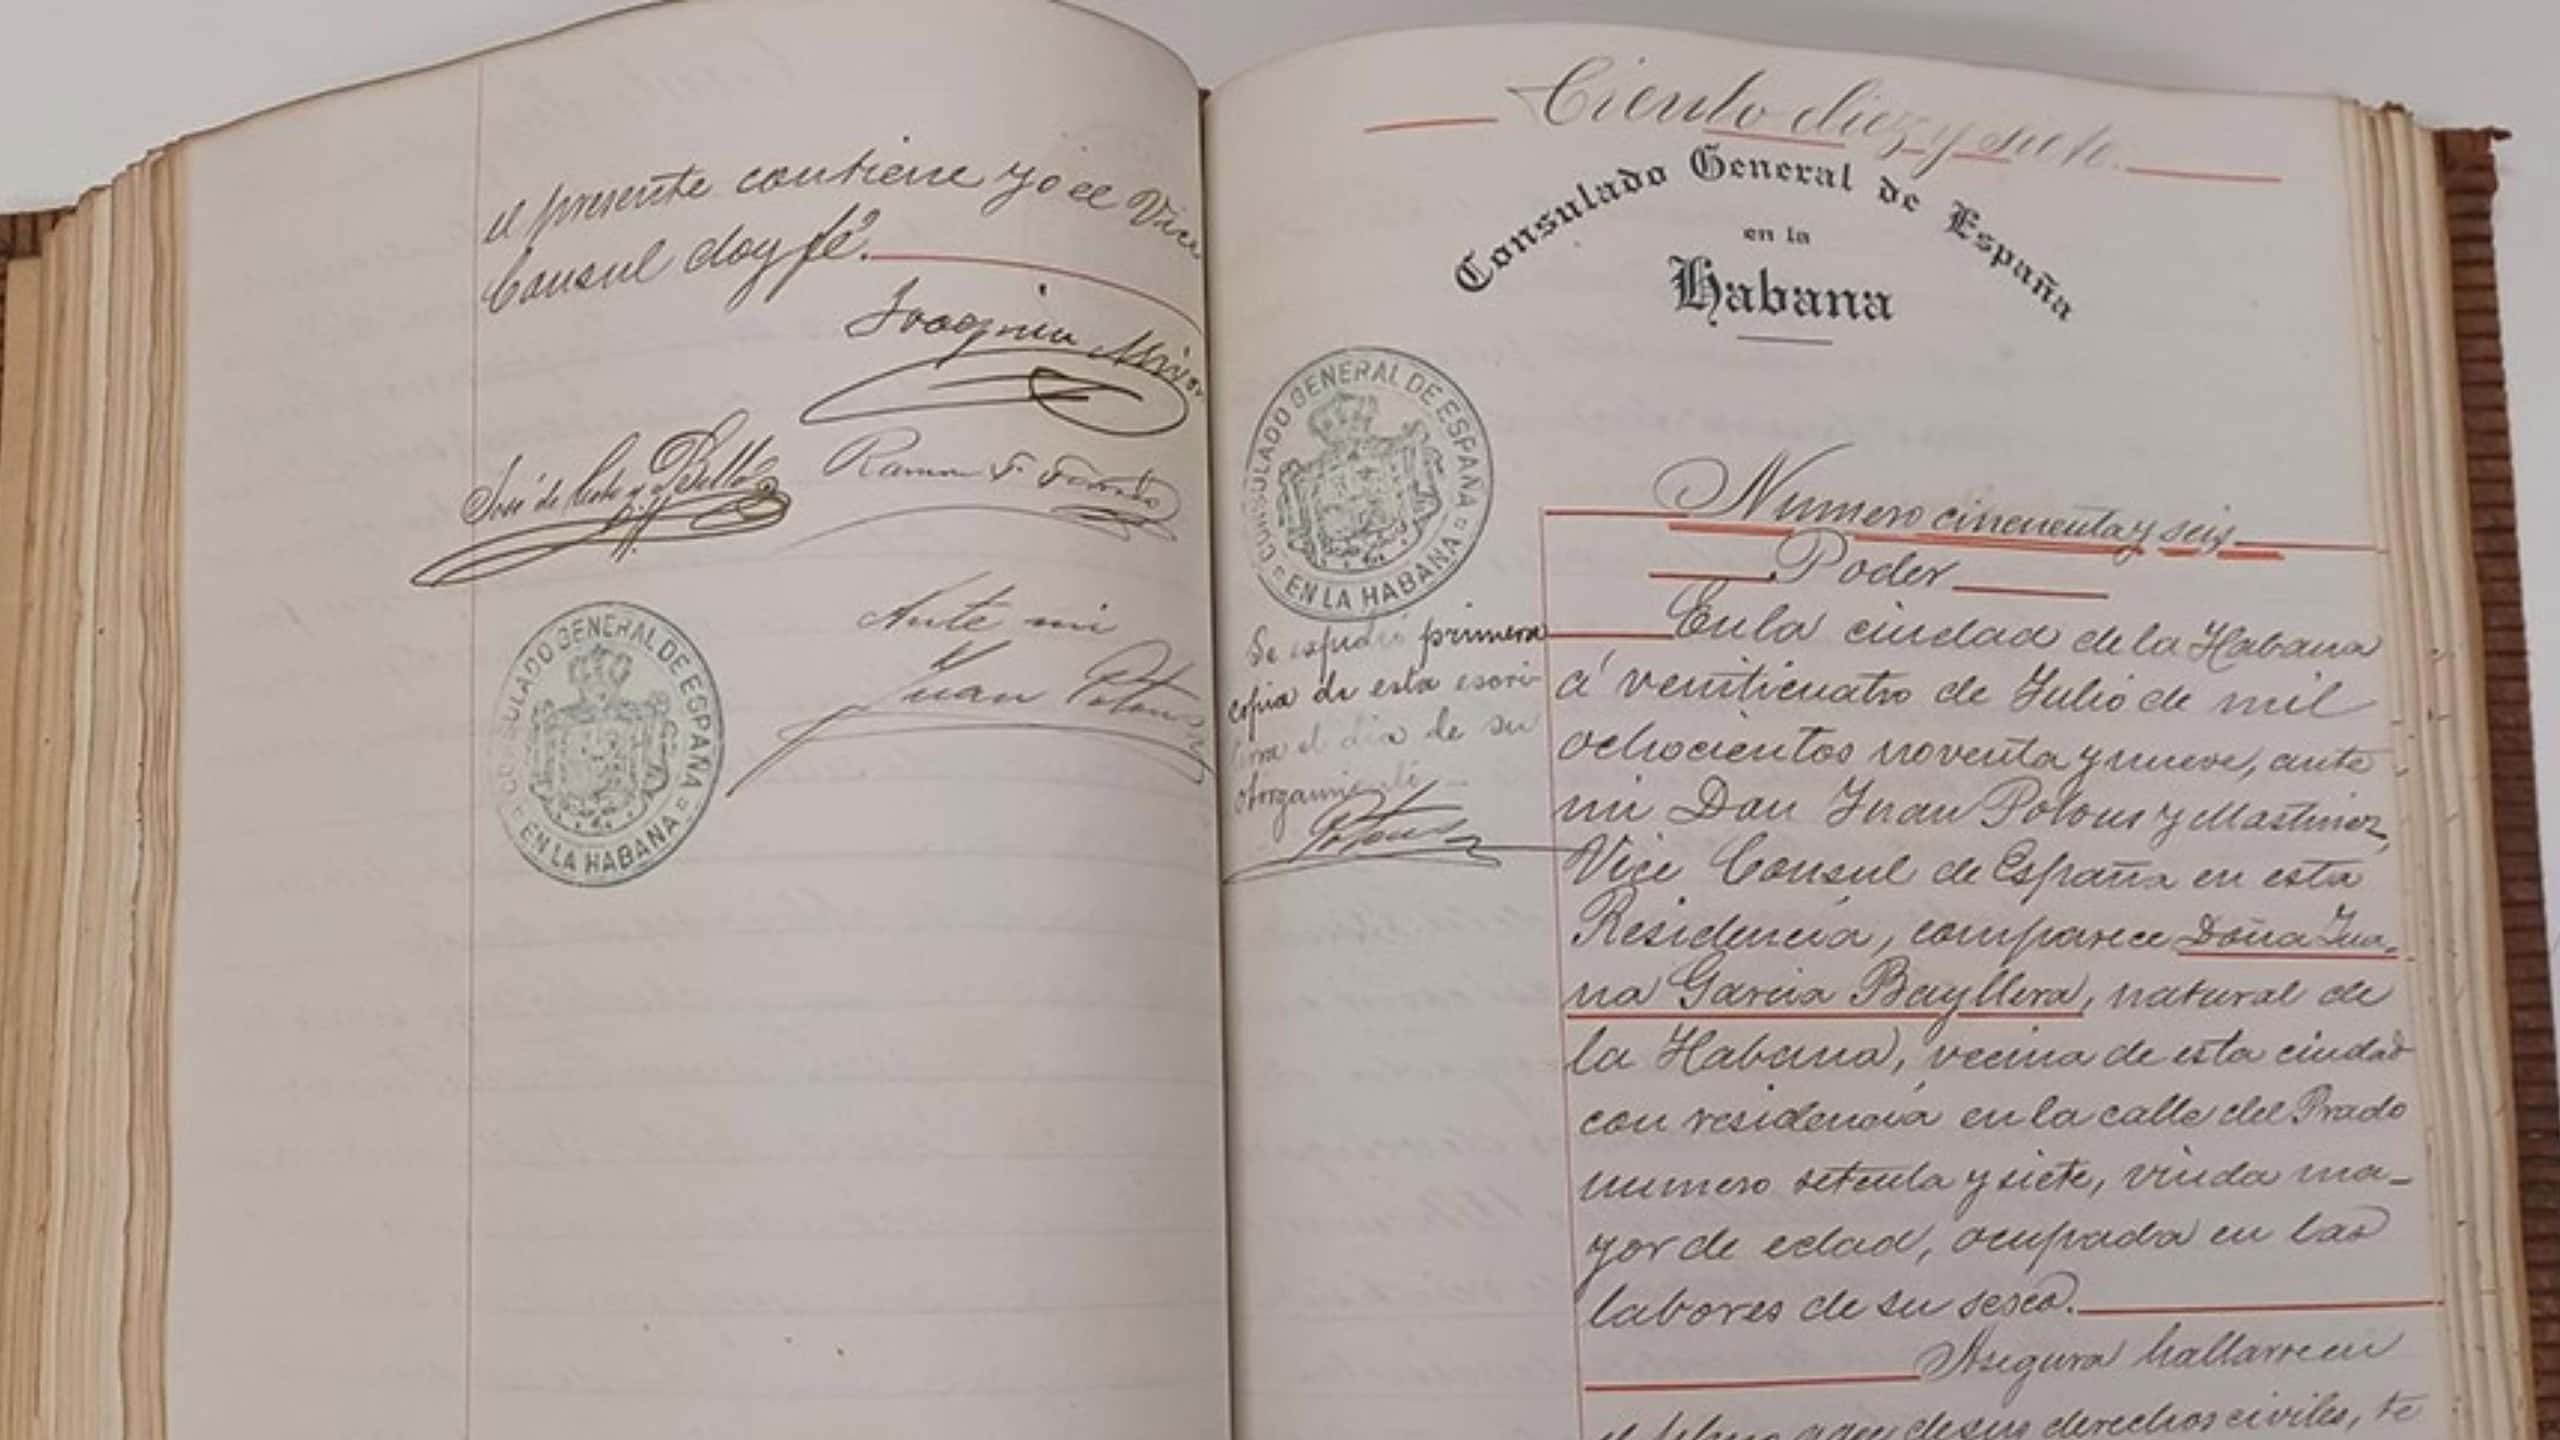 el presente contiene yo el Vice
Consul doy fé.
Joaquin
José de
Ramon F.
CONSULADO GENERAL DE ESPAÑA
EN LA HABANA
Ante mi
Juan Potous
Ciento diez y siete
Consulado General de España
en la
Habana
CONSULADO GENERAL DE ESPAÑA
EN LA HABANA
Se espidió primera
copia de esta escri-
tura el dia de su
otorgamiento
Potous
Numero cincuenta y seis
Poder
En la ciudad de la Habana
á veniticuatro de Julio de mil
ochocientos noventa y nueve, ante
mi Don Juan Potous y Martinez,
Vice Consul de España en esta
Residencia, comparece Doña Jua-
na Garcia Bayllera, natural de
la Habana, vecina de esta ciudad
con residencia en la calle del Prado
numero setenta y siete, viuda ma-
yor de edad, ocupada en las
labores de su secso.
Asegura hallarse en
el pleno goce de sus derechos civiles, te